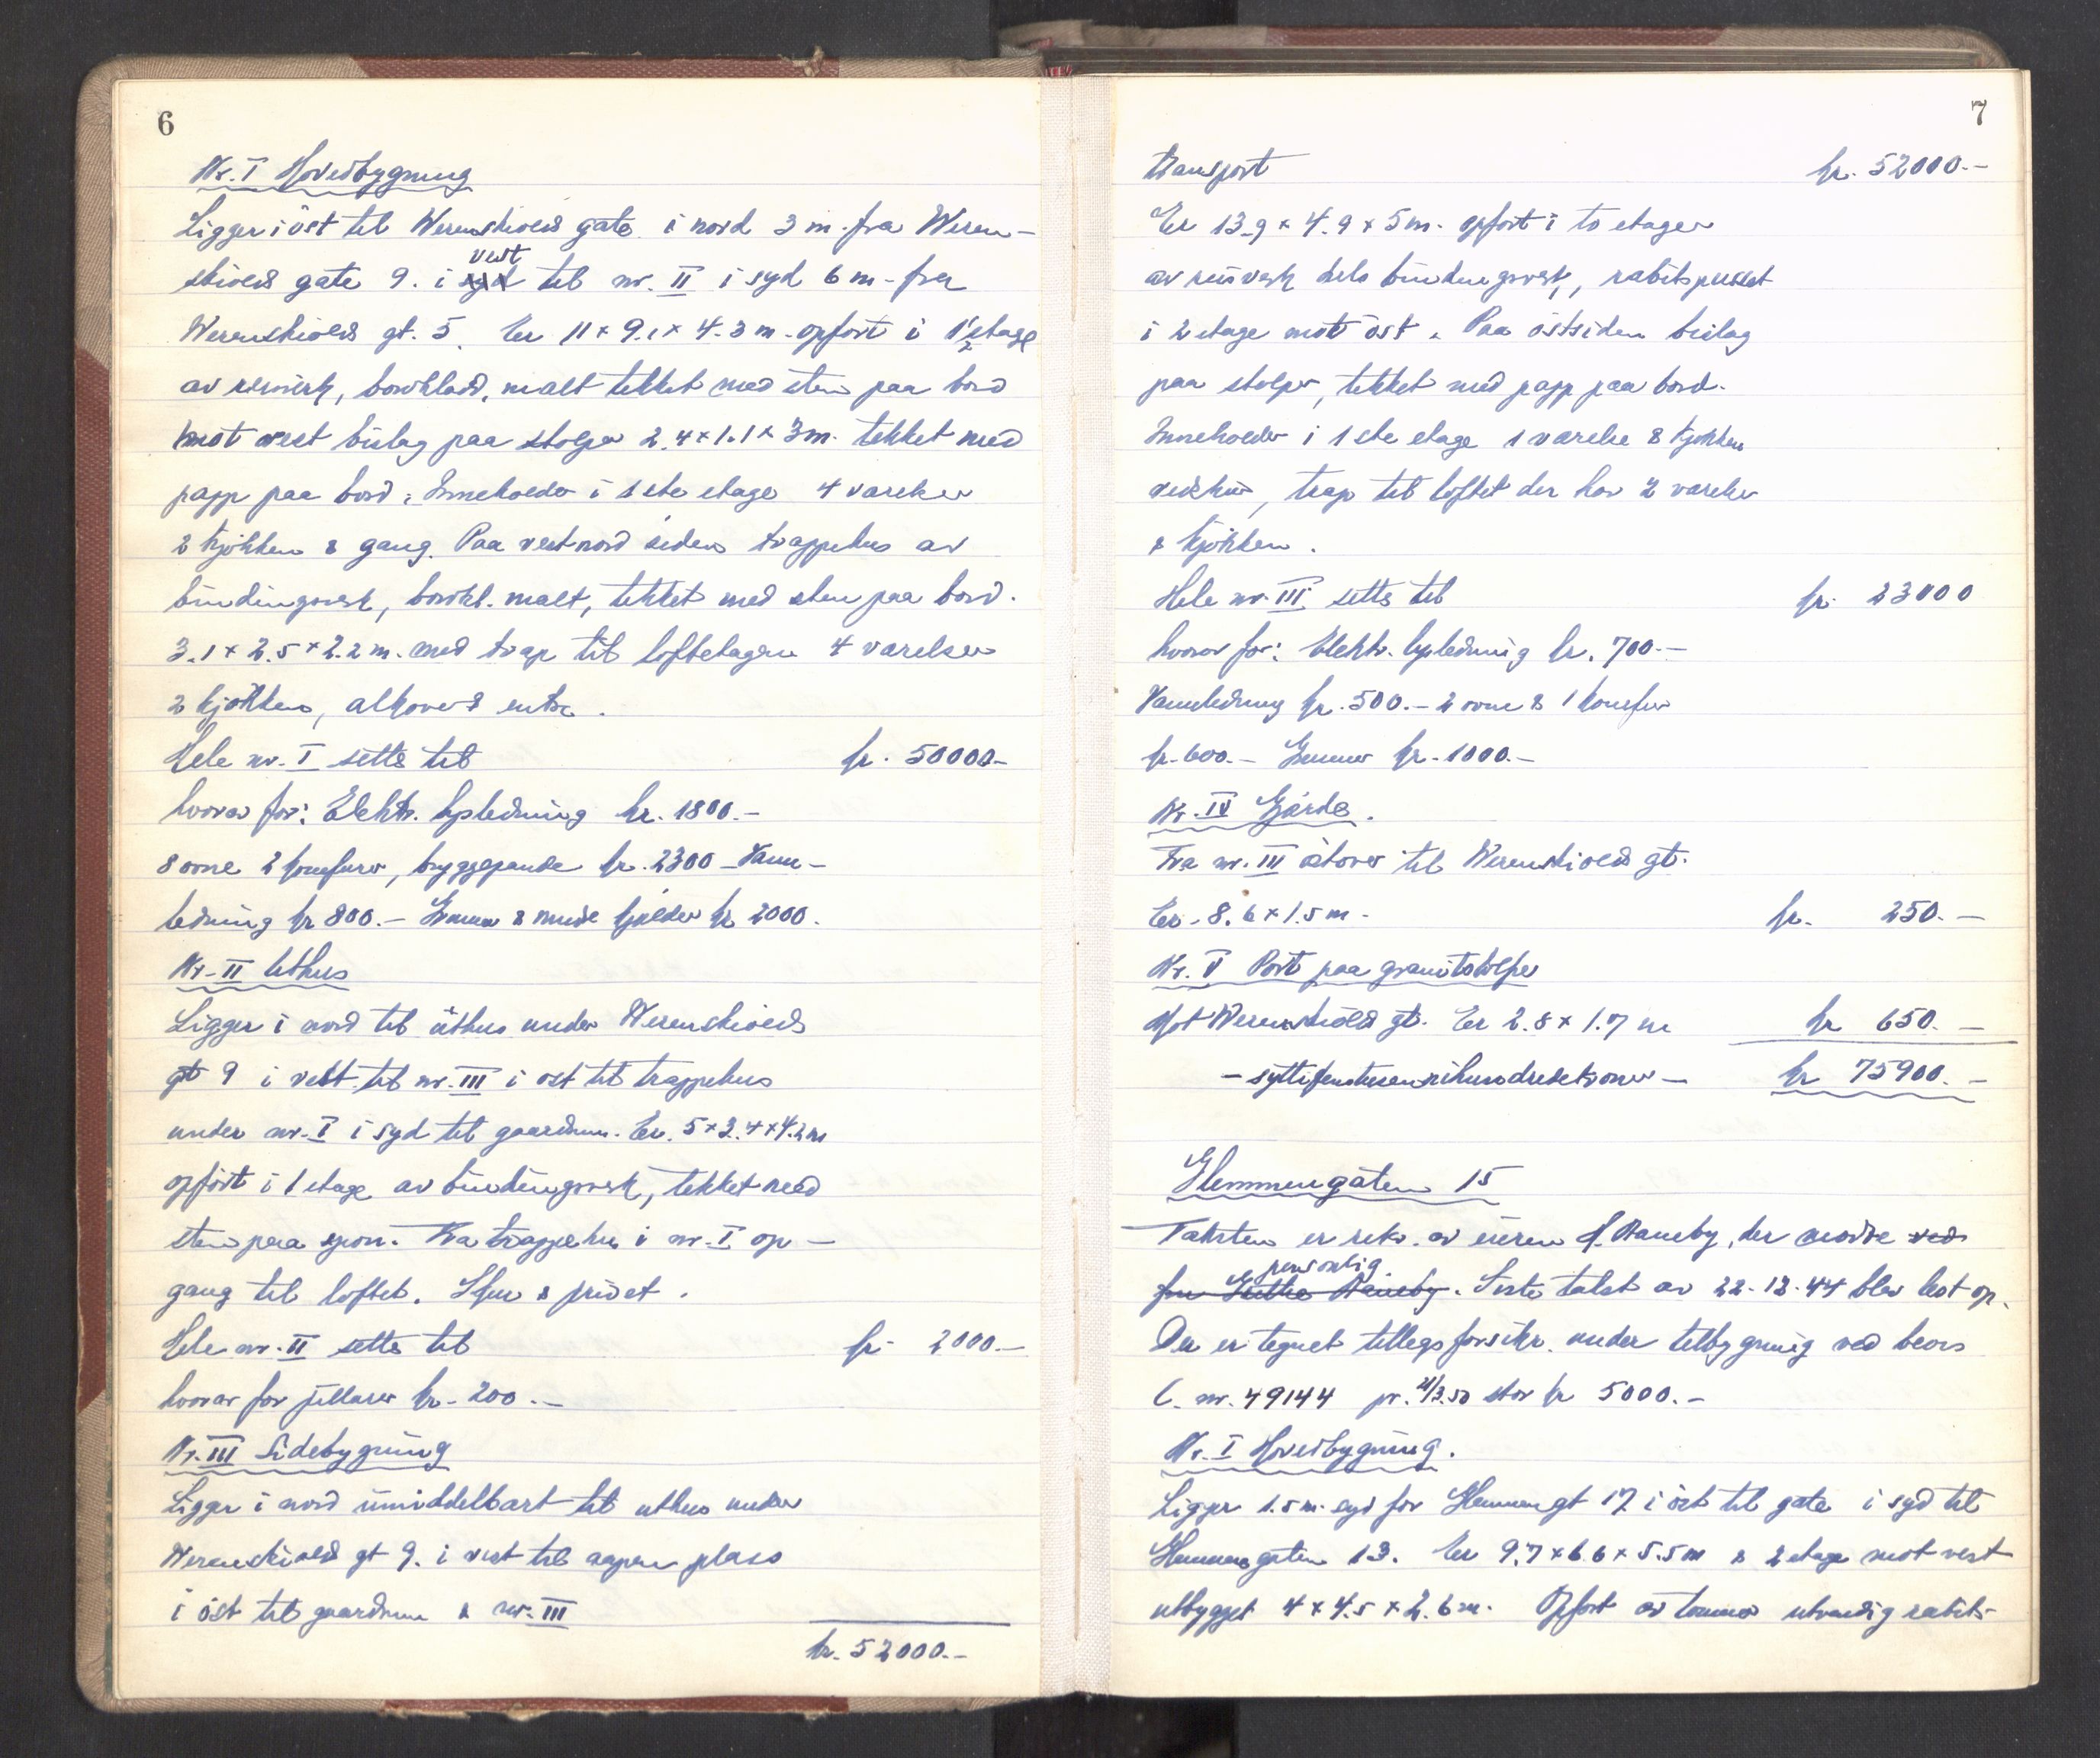 6
Nr. I Hovedbygning
Ligger i öst til Werenskiolds gate i nord 3 m. fra Weren-
skiolds gate 9. i syd vest til nr. II i syd 6 m. fra
Werenskiolds gt. 5. Er 11 x 9.1 x 4.3 m. opfört i 1½ etage
av reisverk, bordkladd, malt tekket med sten paa bord
mot vest bislag paa stolper 2.4 x 1.1 x 3 m. tekket med
papp paa bord. Inneholder i 1ste etage 4 värelser
2 kjökken & gang. Paa vest nord siden trappehus av
bindingsverk, bordkl. malt, tekket med sten paa bord.
3.1 x 2.5 x 2.2 m. med trap til loftetagen 4 värelser
2 kjökken, alkove & entre.
Hele nr. I settes til kr. 50000.-
hvorav for: Elektr. lysledning kr. 1800.-
8 ovne 2 komfurer, bryggepande kr. 2300 - Vann-
ledning kr 800.- Grunnmur & mure kjelder kr 2000.
Nr. II Uthus
Ligger i nord til uthus under Werenskiolds
gt 9 i vest til nr. III i ost til trappehus
under nr. I i syd til gaardsrum. Er. 5 x 3.4 x 4.2 m
opfört i 1 etage av bindingsverk, tekket med
sten paa spon. Fra trappehus i nr. I op-
gang til loftet. Skur & privet.
Hele nr. II settes til kr. 2000.-
hvorav for pillarer kr. 200.-
Nr. III Sidebygning
Ligger i nord umiddelbart til uthus under
Werenskiolds gt 9. i vest til aapen plass
i öst til gaardsrum & nr. III
kr. 52000.-
7
Transport kr. 52000.-
Er 13.9 x 4.9 x 5 m. opfört i to etager
av reisverk dels bindingsverk, rabitspusset
i 2 etage mot öst. Paa östsiden bislag
paa stolper, tekket med papp paa bord.
Inneholder i 1ste etage 1 värelse & kjökken
vedskur, trap til loftet der har 2 värelser
& kjökken.
Hele nr. III settes til kr. 23000
hvorav for: Elektr. lysledning kr. 700.-
Vannledning kr. 500.- 2 ovne & 1 komfur
kr. 600.- Grunnmur kr. 1000.-
Nr. IV Gjärde.
Fra nr. III östover til Werenskiolds gt.
Er. 8.6 x 1.5 m. kr. 250.-
Nr. V Port paa granitstolper
Mot Werenskiolds gt. Er 2.8 x 1.7 m kr 650.-
- syttifemtusennihundredekroner - kr 75900.-
Glemmengaten 15
Taksten er rekv. av eieren H. Raneby, der mötte ved
fru Raneby personlig. Siste takst av 22.12.44 blev lest op.
Der er tegnet tillegsforsikr. under tilbygning ved bevis
C. nr. 49144 pr. 21/3.50 stor kr 5000.-
Nr. I Hovedbygning.
Ligger 1.5 m. syd for Glemmengt 17 i öst til gate i syd til
Glemmengaten 13. Er 9.7 x 6.6 x 5.5 m & 2 etage mot vest
utbygget 4 x 4.5 x 2.6 m. Opfört av tömmer utvendig rabits-